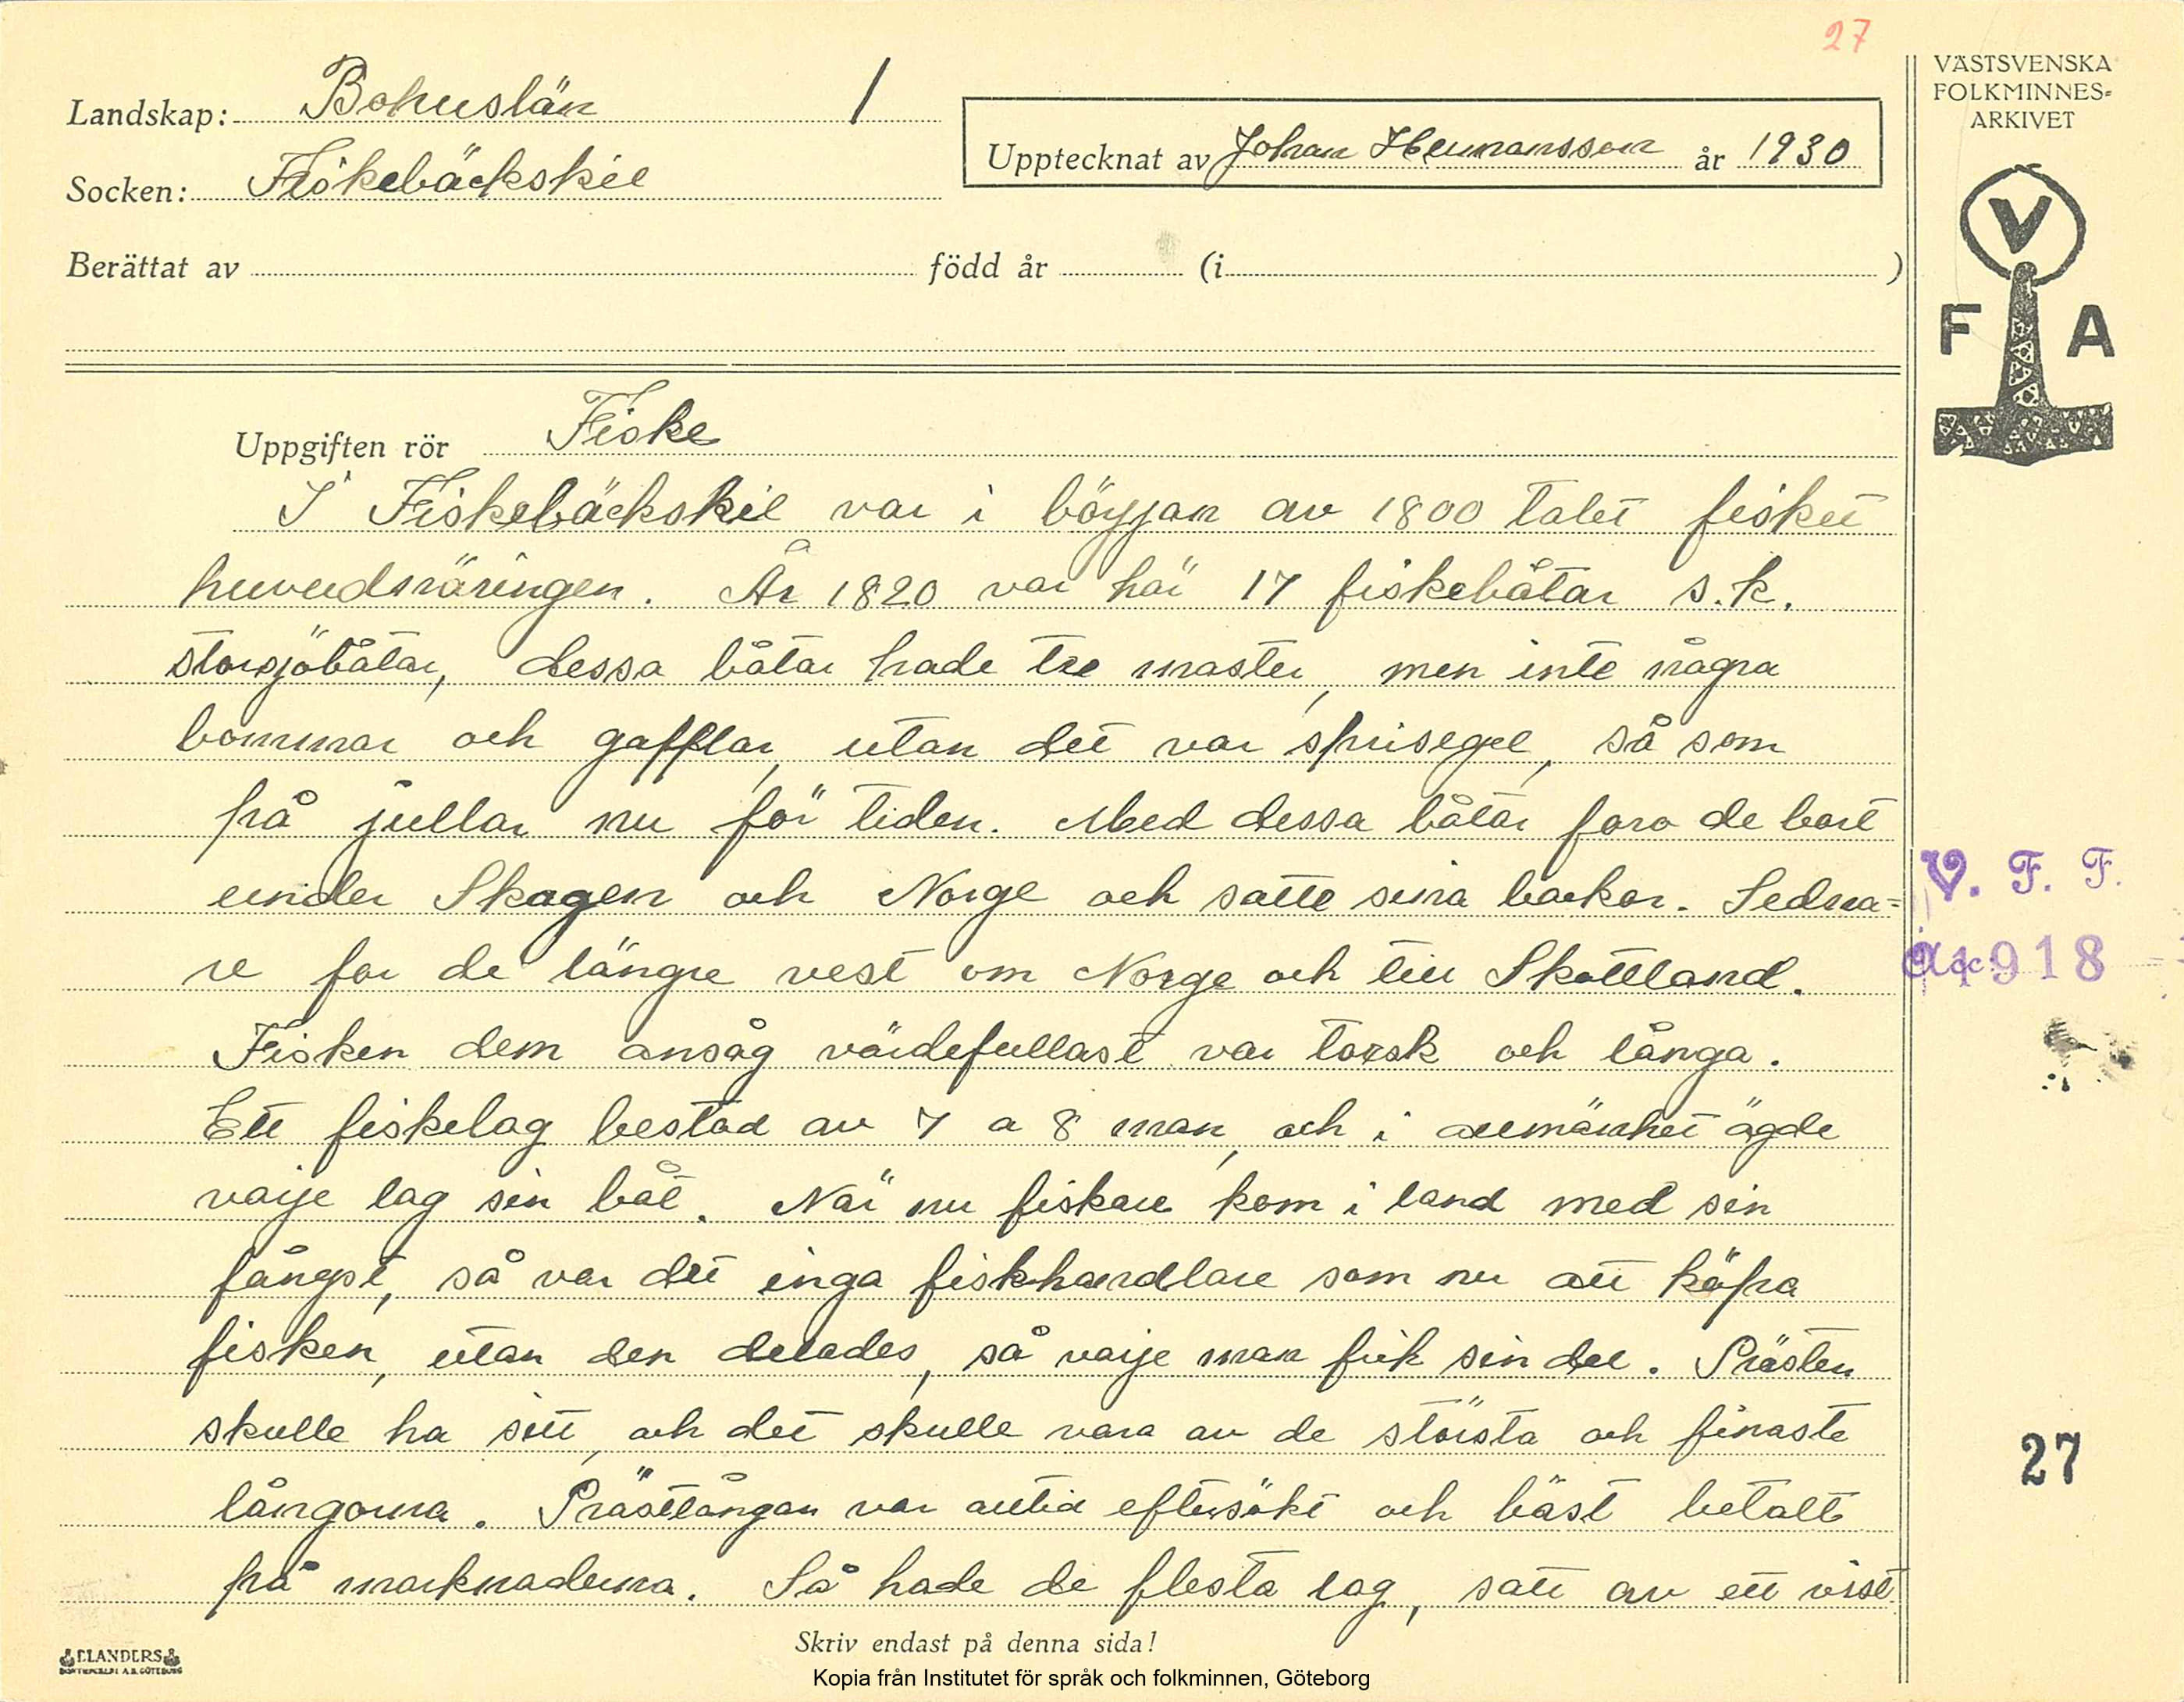 27
VÄSTSVENSKA
FOLKMINNES=
ARKIVET
Landskap: Bohuslän 1
Upptecknat av Johan Hermansson år 1930
Socken: Fiskebäckskil
Berättat av född år (i )
V
F A
Uppgiften rör Fiske
I Fiskebäckskil var i början av 1800 talet fisket
huvudnäringen. År 1820 var här 17 fiskebåtar s.k.
storsjöbåtar, dessa båtar hade tre master, men inte några
bommar och gafflar, utan det var sprisegel, så som
på jullar nu för tiden. Med dessa båtar foro de bort
under Skagen och Norge och satte sina backor. Sedna=
re for de längre vest om Norge och till Skottland.
Fisken dem ansåg värdefullast var torsk och långa.
Ett fiskelag bestod av 7 a 8 man, och i allmänhet ägde
varje lag sin båt. När nu fiskare kom i land med sin
fångst, så var det inga fiskhandlare som nu att köpa
fisken, utan den delades, så varje man fick sin del. Prästen
skulle ha sitt, och det skulle vara av de största och finaste
långorna. Prästlångan var alltid eftersökt och bäst betalt
på marknaderna. Så hade de flesta lag, satt av ett visst
V. F. F.
Acc 1918
27
Skriv endast på denna sida!
ELANDERS
BOKTRYCKERI A.B. GÖTEBORG
Kopia från Institutet för språk och folkminnen, Göteborg